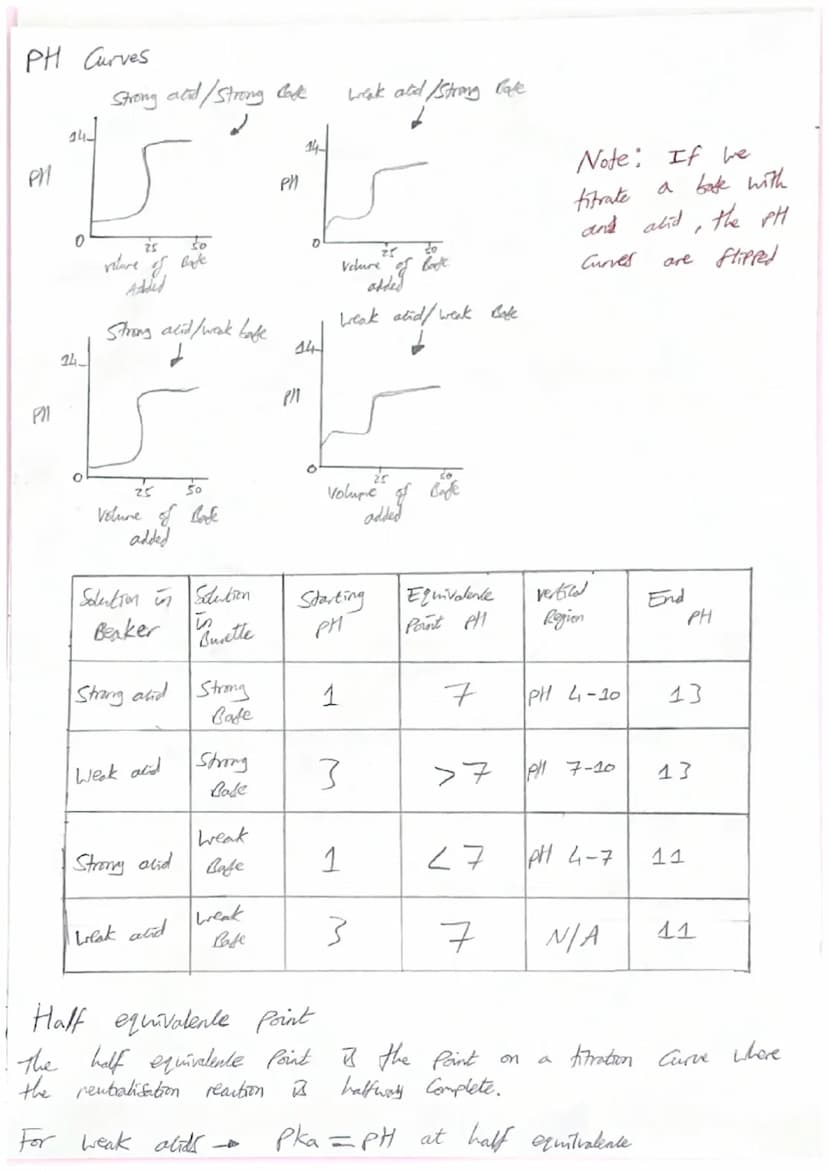 PH Curves
Strong acid/Strong Base
14
PH
0
25 50
Volume of Base
Added
Weak acid/Strong Base
14
PH
0
25 50
Volume of Base
added
Note: If we
titrate a base with
and acid, the PH
Curves are flipped
Strong acid/weak base
14
PH
0
25 50
Volume of Base
added
Weak acid/weak Base
14
PH
0
25 50
Volume of Base
added
Solution in Beaker | Solution in Burette | Starting PH | Equivalence Point PH | Vertical Region | End PH
Strong acid | Strong Base | 1 | 7 | PH 4-10 | 13
Weak acid | Strong Base | 3 | >7 | PH 7-10 | 13
Strong acid | Weak Base | 1 | <7 | PH 4-7 | 11
Weak acid | Weak Base | 3 | 7 | N/A | 11
Half equivalence Point
The half equivalence Point is the Point on a titration Curve where
the neutralisation reaction is halfway Complete.
For weak acids → Pka = PH at half equivalence